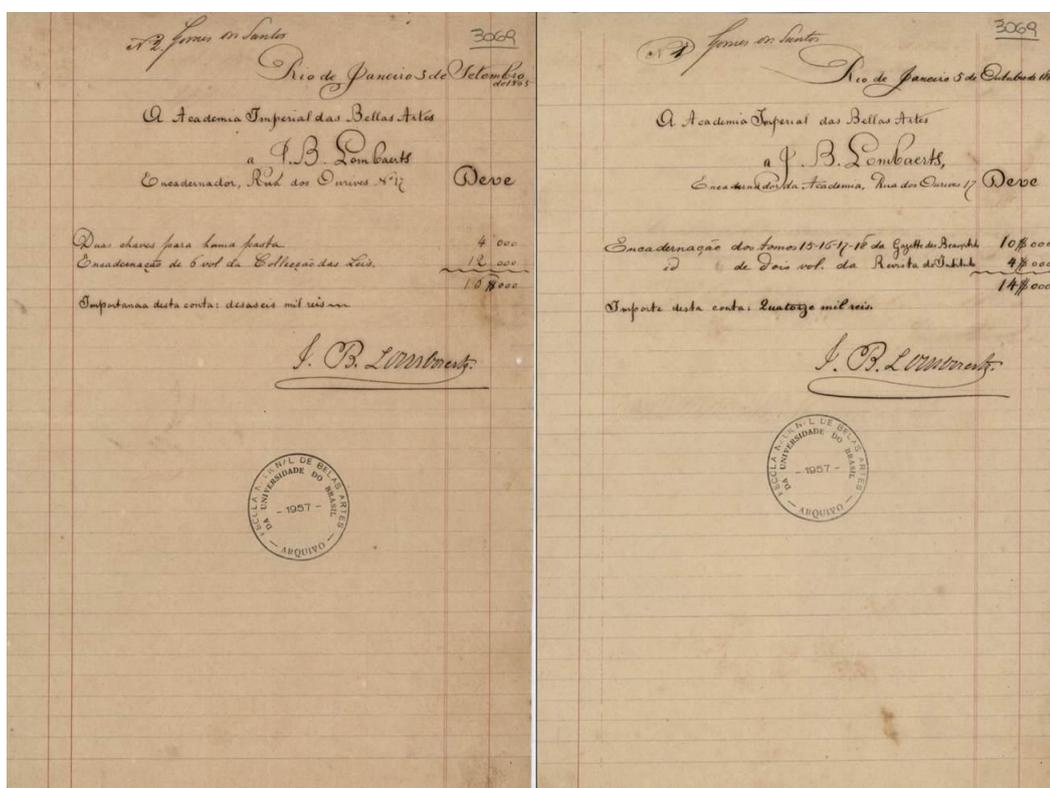 Nº 2 Gomes os Santos
3069
Rio de Janeiro 5 de Setembro
de 1865
A Academia Imperial das Bellas Artes
a J. B. Lombaerts
Encadernador, Rua dos Ourives Nº 17 Deve
Duas chaves para huma pasta 4 000
Encadernação de 6 vol da Collecção das Leis. 12 000
Importancia desta conta: desaseis mil reis
J. B. Lombaerts.
ESCOLA NACIONAL DE BELAS ARTES
DA UNIVERSIDADE DO BRASIL
- 1957 -
ARQUIVO
Nº 1 Gomes os Santos
3069
Rio de Janeiro 5 de Outubro de
A Academia Imperial das Bellas Artes
a J. B. Lombaerts,
Encadernador da Academia, Rua dos Ourives 17 Deve
Encadernação dos tomos 15-16-17-18 da Gazette des Beaux 10$000
id de Dois vol. da Revista do Instituto 4$000
14$000
Importe desta conta: Quatorze mil reis.
J. B. Lombaerts.
ESCOLA NACIONAL DE BELAS ARTES
DA UNIVERSIDADE DO BRASIL
- 1957 -
ARQUIVO